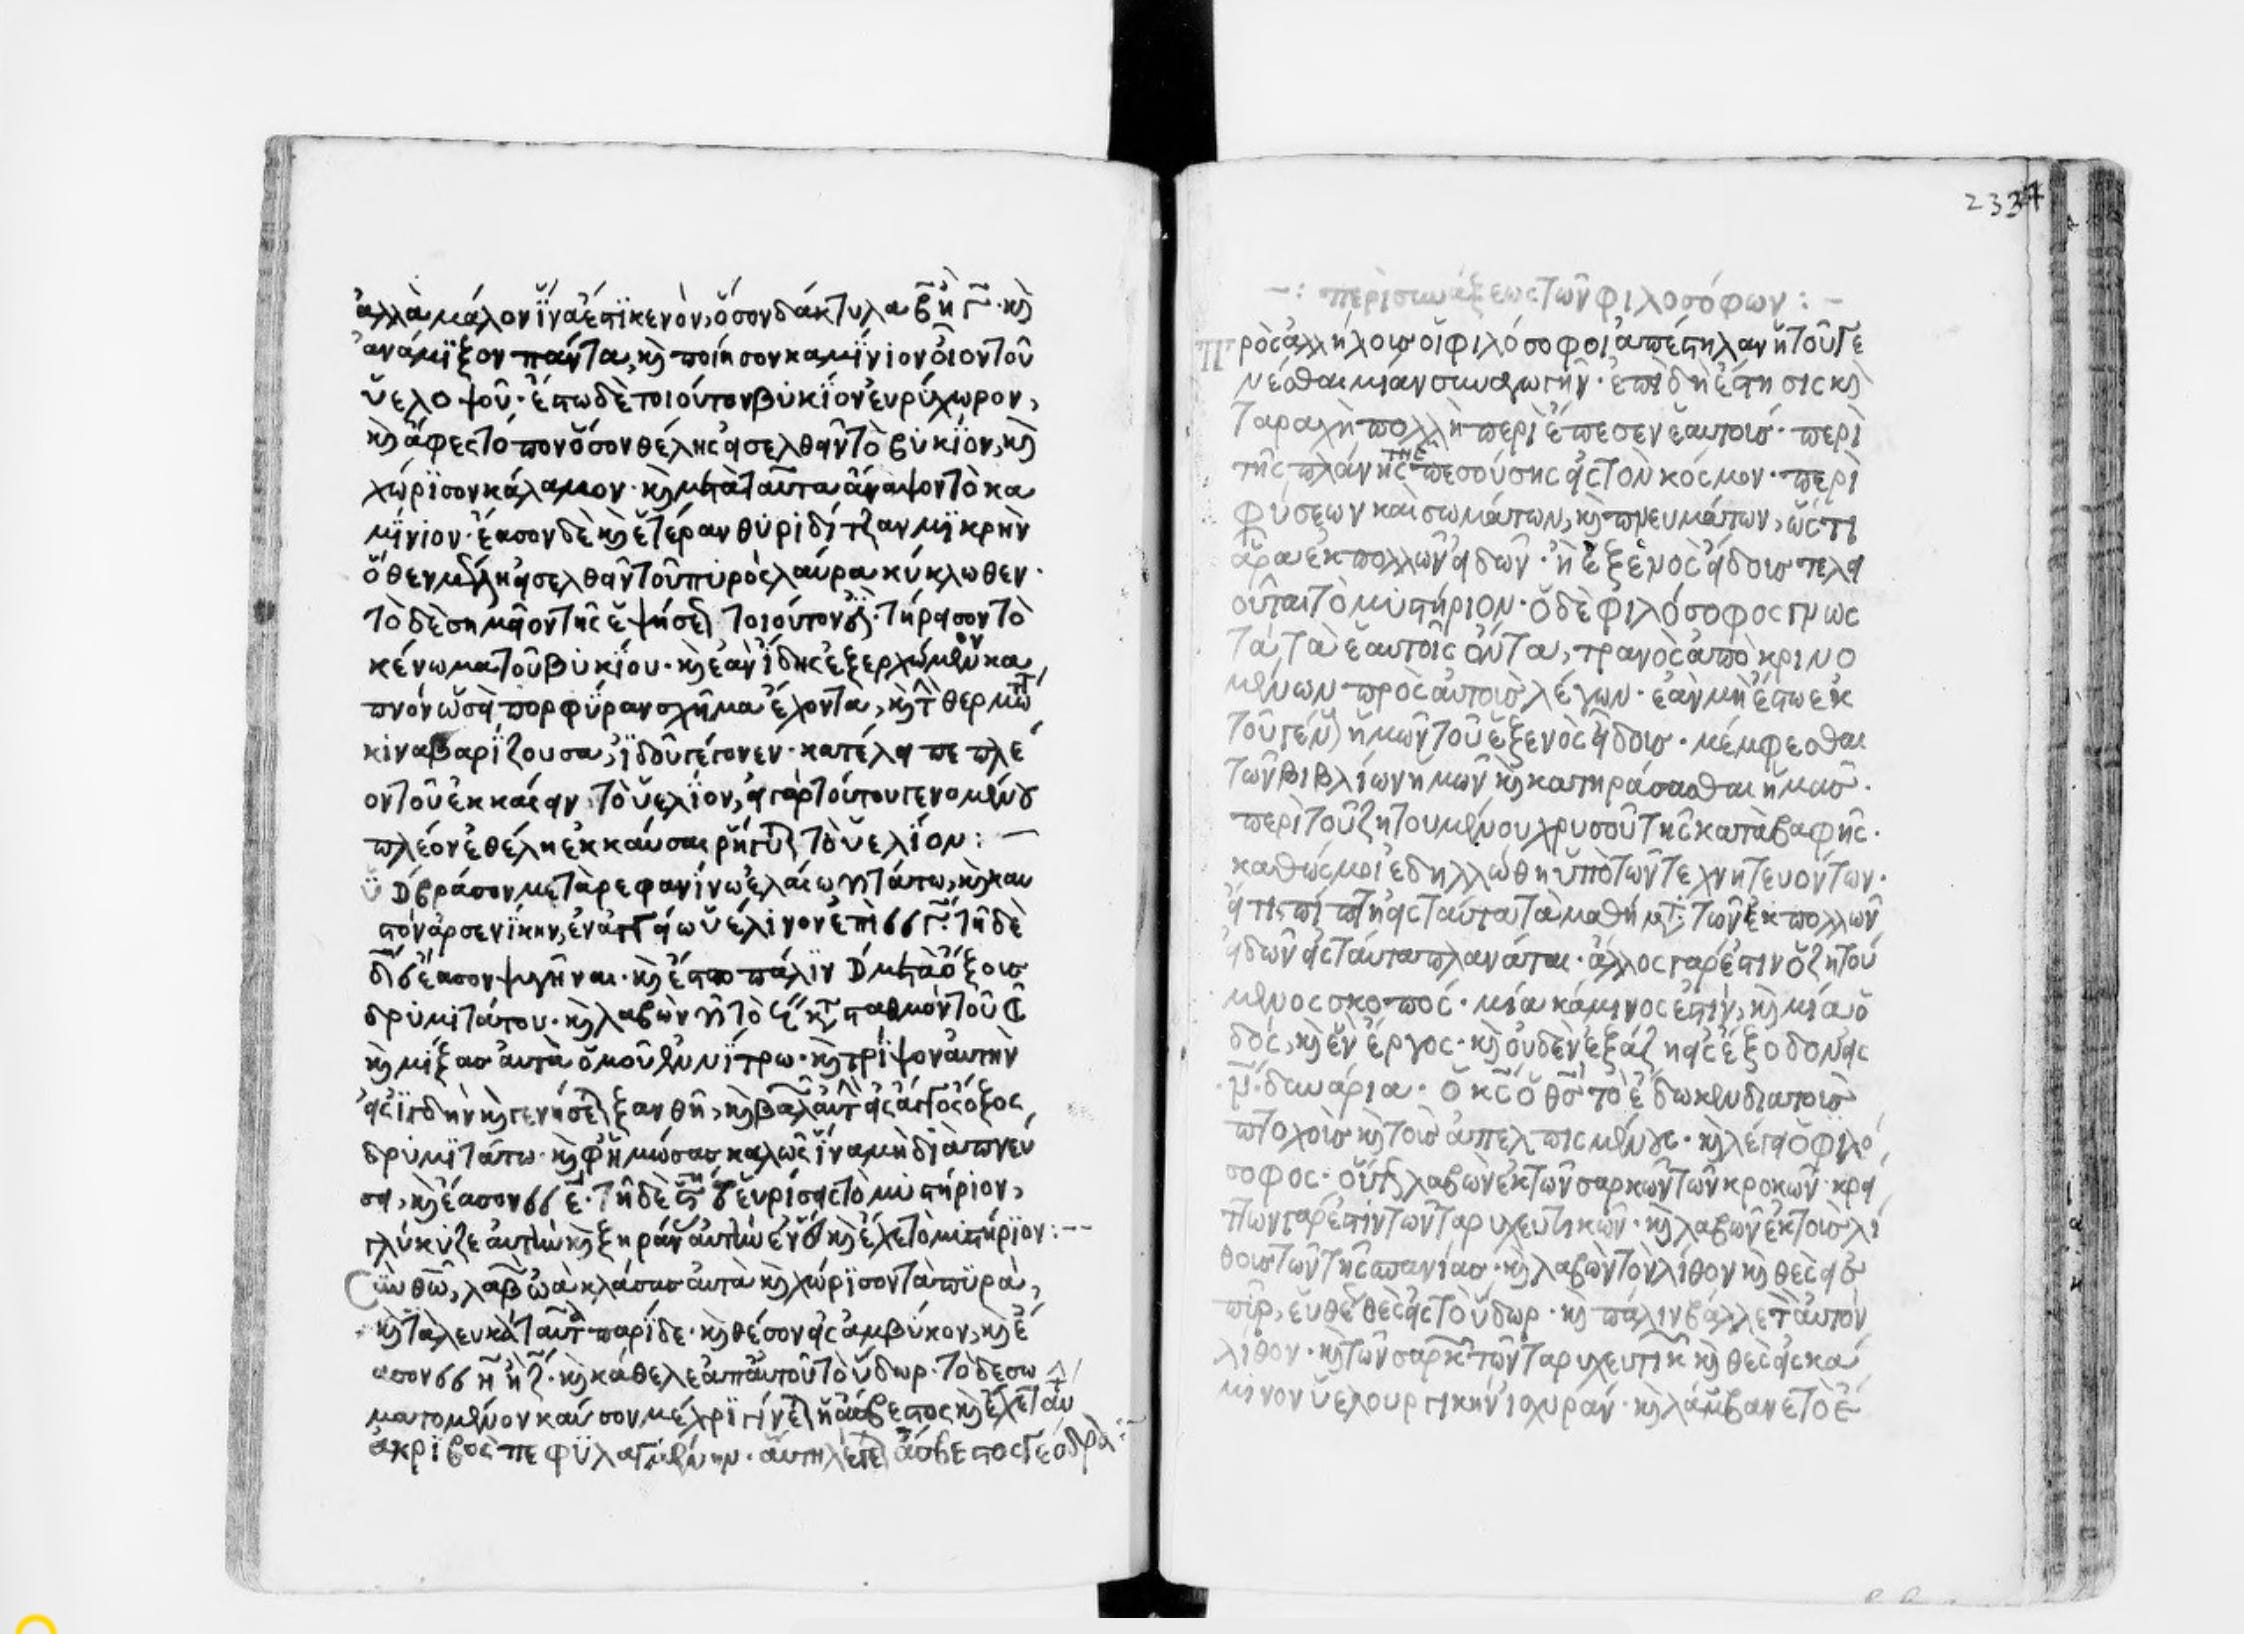 ἀλλὰ μάλον ἵνα ἐπϊκενὸν, ὅσον δάκτυλα β ἢ γ· κὶ
ἀνάμϊξον πάντα, κὶ ποίησον καμΐνιον οἷον τοῦ
ὑελοψοῦ· ἔστω δὲ τοιούτον βϋκίον εὐρύχωρον,
κὶ ἄφες τόπον ὅσον θέλης εἰσελθεῖν τὸ βϋκίον, κὶ
χώρϊσον κάλαμον· κὶ μετὰ ταῦτα ἄναψον τὸ κα
μΐνιον· ἔασον δὲ κὶ ἑτέραν θϋρίδίτζαν μϊκρὴν
ὅθεν μέλλη εἰσελθεῖν τοῦ πυρὸς λαύρα κύκλωθεν·
τὸ δὲ σημεῖον τῆς ἑψήσε τοιούτον· τήρησον τὸ
κένωμα τοῦ βϋκΐου· κὶ ἐὰν ἴδης ἐξερχώμενον κα
πνὸν ὡσεὶ πορφϋραν σχῆμα ἔχοντα, κὶ τ θερμω
κϊναβαρΐζουσα, ἰδοῦ γέγονεν· κατέλειπε πλέ
ον τοῦ ἐκκαίειν τὸ ὑελΐον, εἰ γὰρ τούτου γενομένου
πλέον ἐθέλη ἐκκαύσαι ῥήγν τὸ ὑελΐον:
βράσον μετὰ ρεφανΐνω ἐλαίω, κὶ καυ
στὸν ἀρσενϊκην, ἐν ἀγγείω ὑελίνον ἐπὶ γ· τῆ δὲ
δ ἔασον ψυγῆναι· κὶ ἔστω πάλϊν μετὰ ὄξους
δρϋμϊτάτου· κὶ λαβὼν τὸ σταθμὸν τοῦ
κὶ μίξας αὐτὰ ὁμοῦ νίτρω· κὶ τρΐψον αὐτὴν
εἰς ἴγδην κὶ γενήσε ξανθῆ, κὶ βαλ αὐτ εἰς ἄγγος ὄξος
δρϋμϊτάτω· κὶ φϊμώσας καλῶς ἵνα μὴ διὰ πνεύ
ση, κὶ ἔασον ε· τῆ δὲ εὑρίσεις τὸ μυστήριον,
γλύκϋζε αὐτὴν κὶ ξηράν αὐτὴν ἐν κὶ ἔχε τὸ μιστήριον:
Σὺν θῶ, λαβ ὠὰ κλάσας αὐτὰ κὶ χώρϊσον τὰ πϋρὰ,
κὶ τὰ λευκὰ ταῦτ παρίδε· κὶ θέσον εἰς ἀμβύκον, κὶ ἔ
ασον η ἢ ζ· κὶ κάθελε ἀπαυτοῦ τὸ ὕδωρ· τὸ δὲ σω
ματομένον καύσον μέχρϊ γίνε ἡ ἄσβεστος κὶ ἔχε τ αὐ
ἀκρϊβὸς πεφϋλαγμένην· αὕτη λέγε ἄσβεστος
2337
περὶ συνάξεως τῶν φιλοσόφων:
Πρὸς ἀλλήλους οἱ φιλόσοφοι ἀπέστηλαν ἢ τοῦ γε
νέσθαι μίαν συναγωγὴν· ἐπιδὴ ζήτησις κὶ
ταραχὴ πολλὴ περὶ ἔπεσεν ἑαυτοις· περὶ
τῆς πλάνης τῆς πεσούσης εἰς τὸν κόσμον· περὶ
φύσεων καὶ σωμάτων, κὶ πνευμάτων, ὥς τι
ἄρα ἐκ πολλῶν εἰδῶν· ἢ ἐξ ἑνὸς εἴδους τελει
οῦται τὸ μυστήριον· ὁ δὲ φιλόσοφος γνως
τὰ τὰ ἑαυτοῖς ὄντα, τρανὸς ἀπὸ κρινο
μένων πρὸς αὐτοὺς λέγων· ἐὰν μὴ ἔστω ἐκ
τοῦ γέν ἡμῶν τοῦ ἐξ ἑνὸς εἴδους· μέμφεσθαι
τῶν βιβλίων ἡμῶν κὶ καταράσασθαι ἡμας·
περὶ τοῦ ζητουμένου χρυσοῦ τῆς καταβαφῆς·
καθώς μοι ἐδηλλώθη ὑπὸ τῶν τεχνητευόντων·
εἴ τις πίπτη εἰς ταύτα τὰ μαθήματ τῶν ἐκ πολλῶν
εἰδῶν εἰς ταύτα πλανάται· ἄλλος γὰρ ἐστιν ὁ ζητού
μενος σκοπός· μία κάμινος ἐστὶν, κὶ μία ὁ
δός, κὶ ἓν ἔργος· κὶ οὐδὲν ἐξάζη εἰς ἔξοδον εἰς
ν δινάρια· ὁ κς ὁ θς τὸ ἔδωκεν διὰ τοις
πτοχοὺς κὶ τοὺς ἀπελπισμένους· κὶ λέγει ὁ φιλό
σοφος· οὕτ λαβὼν ἐκ τῶν σαρκῶν τῶν κροκῶν· κρεί
ττων γάρ ἐστιν τῶν ταριχευτικῶν· κὶ λαβῶν ἐκ τοὺς λί
θους τῶν τῆς σπανίας· κὶ λαβὼν τὸν λίθον κὶ θὲς εἰς
πῦρ, εὐθὲ θὲς εἰς τὸ ὕδωρ· κὶ πάλιν βάλλετ αὐτὸν
λίθον· κὶ τῶν σαρκ τῶν ταριχευτικ κὶ θὲς εἰς κα
μινον ὑελουργικὴν ἰσχυράν· κὶ λάμβανε τὸ ἐ